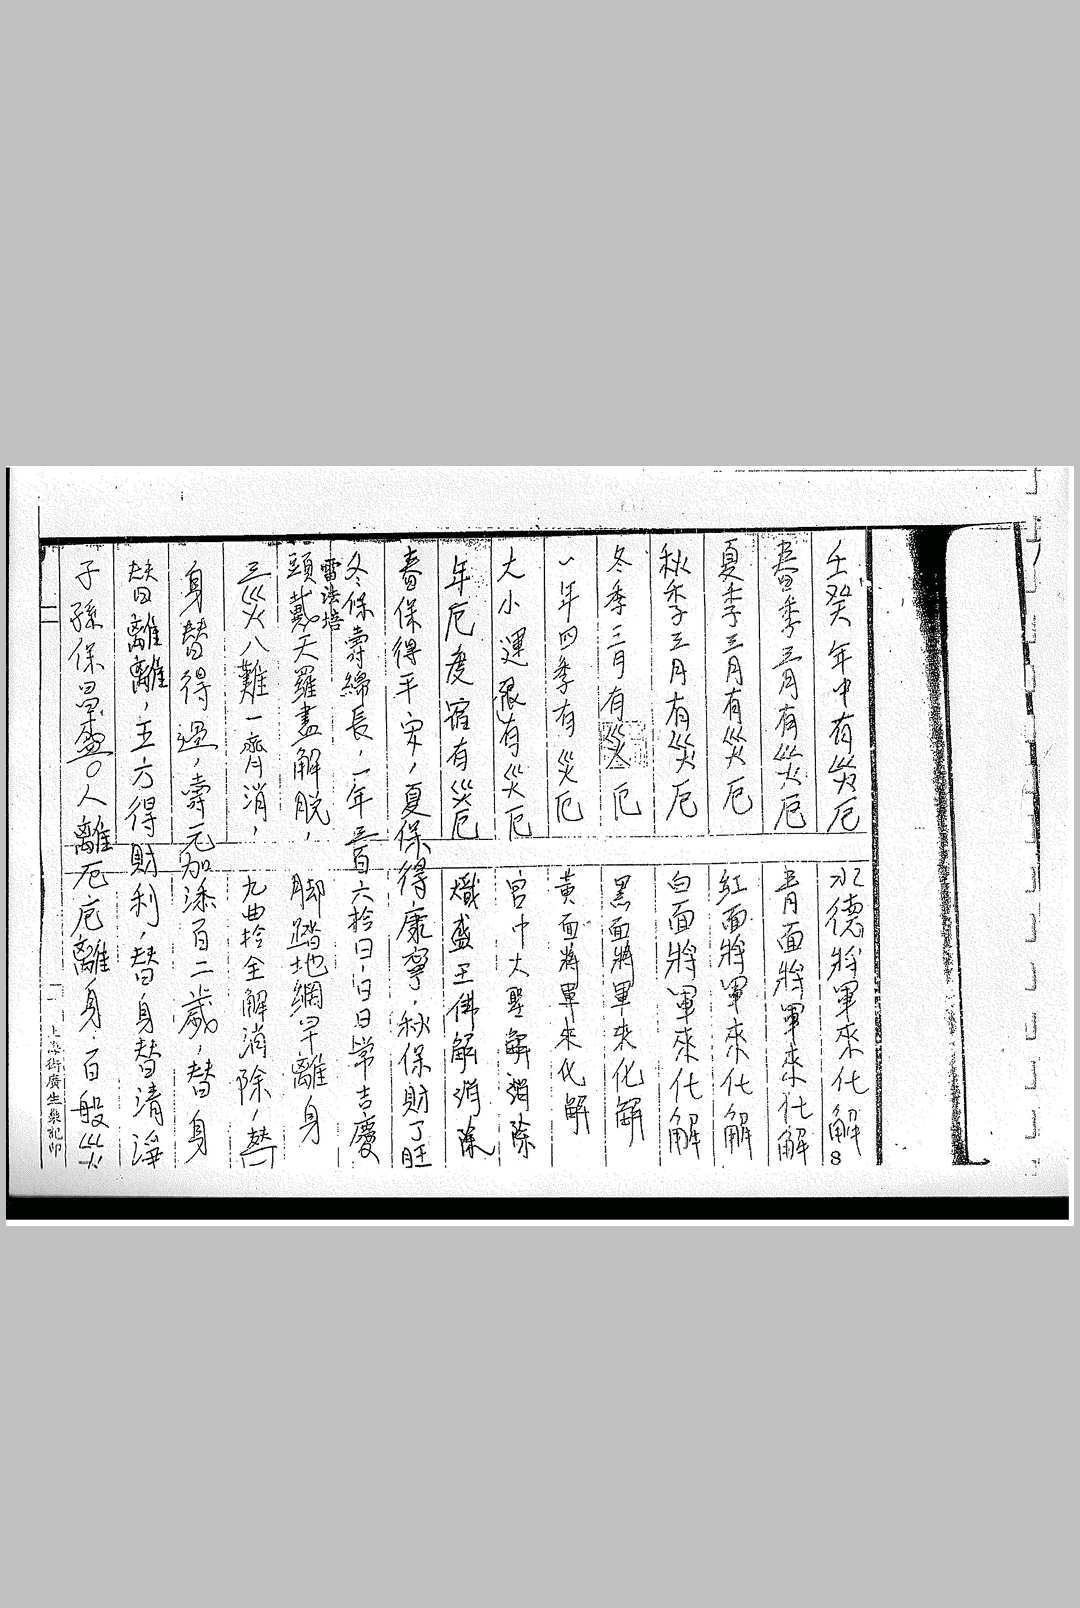 壬癸年中有災厄 水德將軍來化解
春季三月有災厄 青面將軍來化解
夏季三月有災厄 紅面將軍來化解
秋季三月有災厄 白面將軍來化解
冬季三月有災厄 黑面將軍來化解
一年四季有災厄 黃面將軍來化解
大小運限有災厄 宮中大聖解消除
年厄度宿有災厄 熾盛王佛解消除
春保得平安，夏保得康寧，秋保財丁旺
冬保壽綿長，一年三百六拾日，日日常吉慶
雷法培
頭戴天羅盡解脫， 脚踏地網早離身
三災八難一齊消， 九曲拎全解消除，替
身替得過，壽元加添百二歲，替身
替離離，五方得財利，替身替清淨
子孫保昌盛○人離厄厄離身，百般災
8